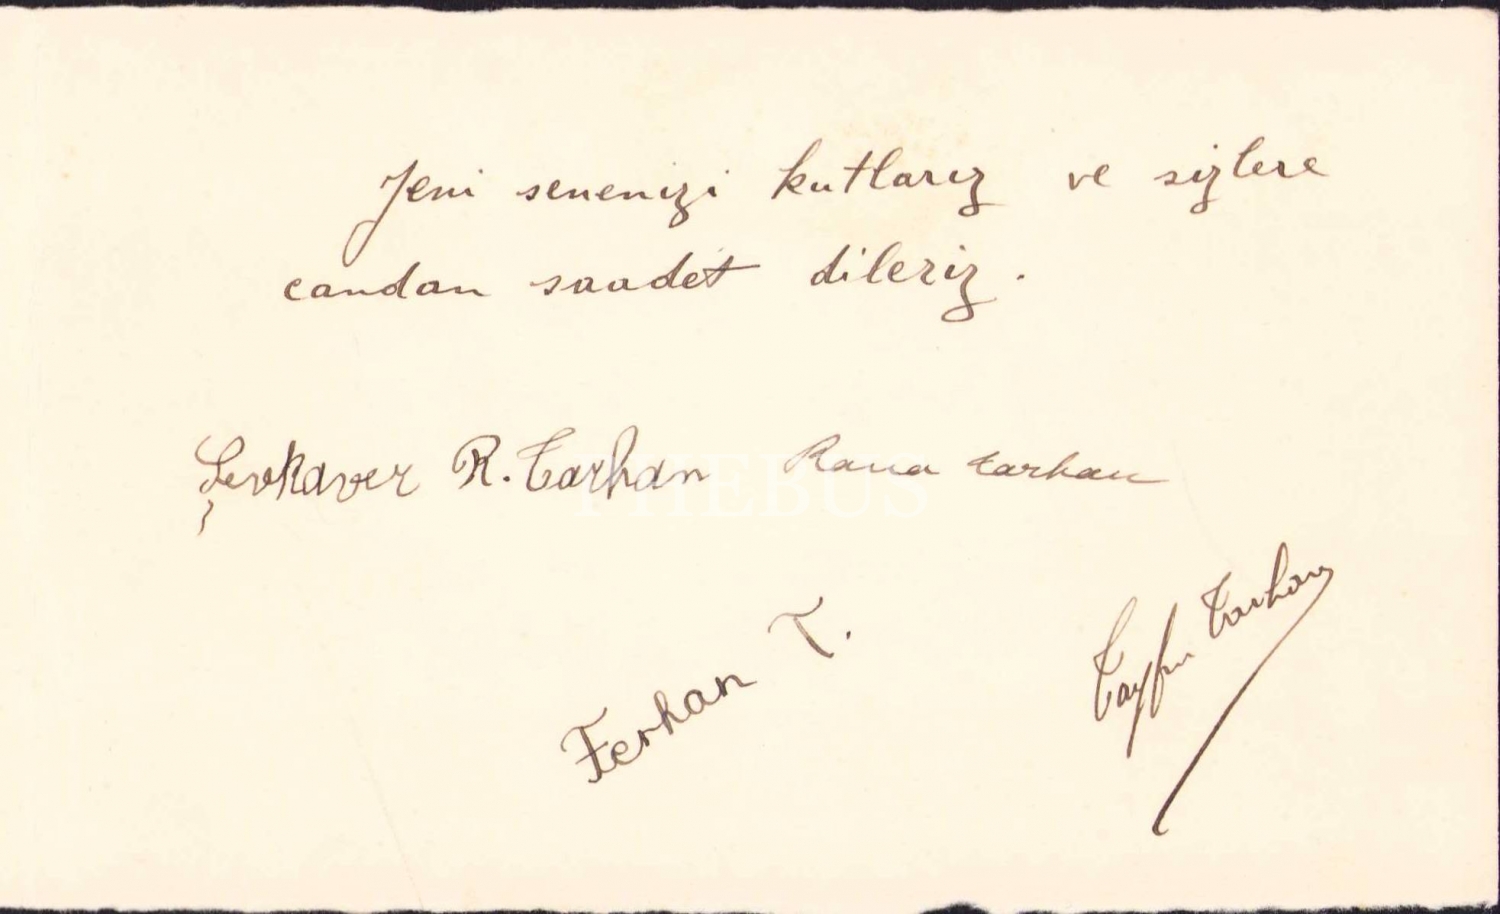 Yeni senenizi kutlarız ve sizlere
candan saadet dileriz.
Şevkaver R. Tarhan Rana Tarhan
PHEBUS
Ferhan T.
Tayfun Tarhan